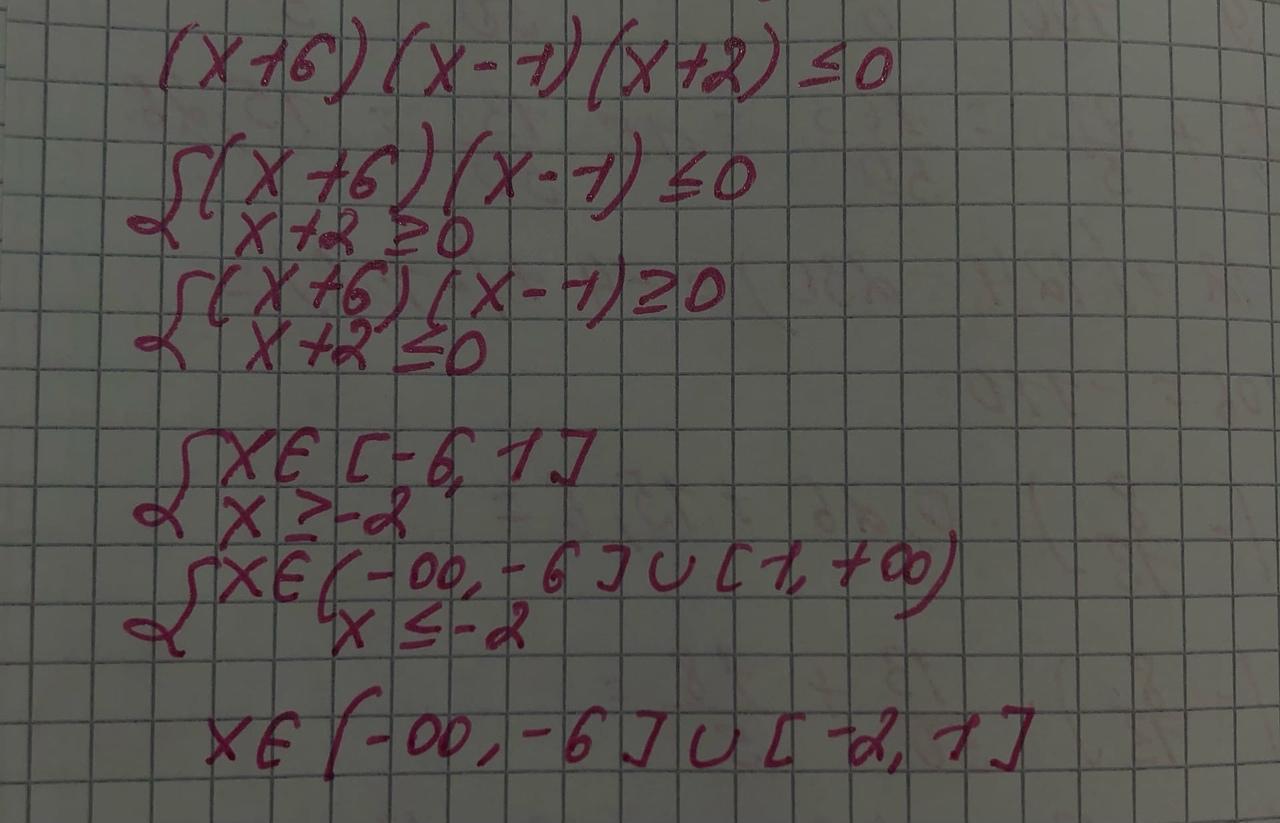 (x+6)(x-1)(x+2)≤0
{(x+6)(x-1)≤0
x+2≥0
{(x+6)(x-1)≥0
x+2≤0
{x∈[-6,1]
x≥-2
{x∈(-∞,-6]∪[1,+∞)
x≤-2
x∈(-∞,-6]∪[-2,1]